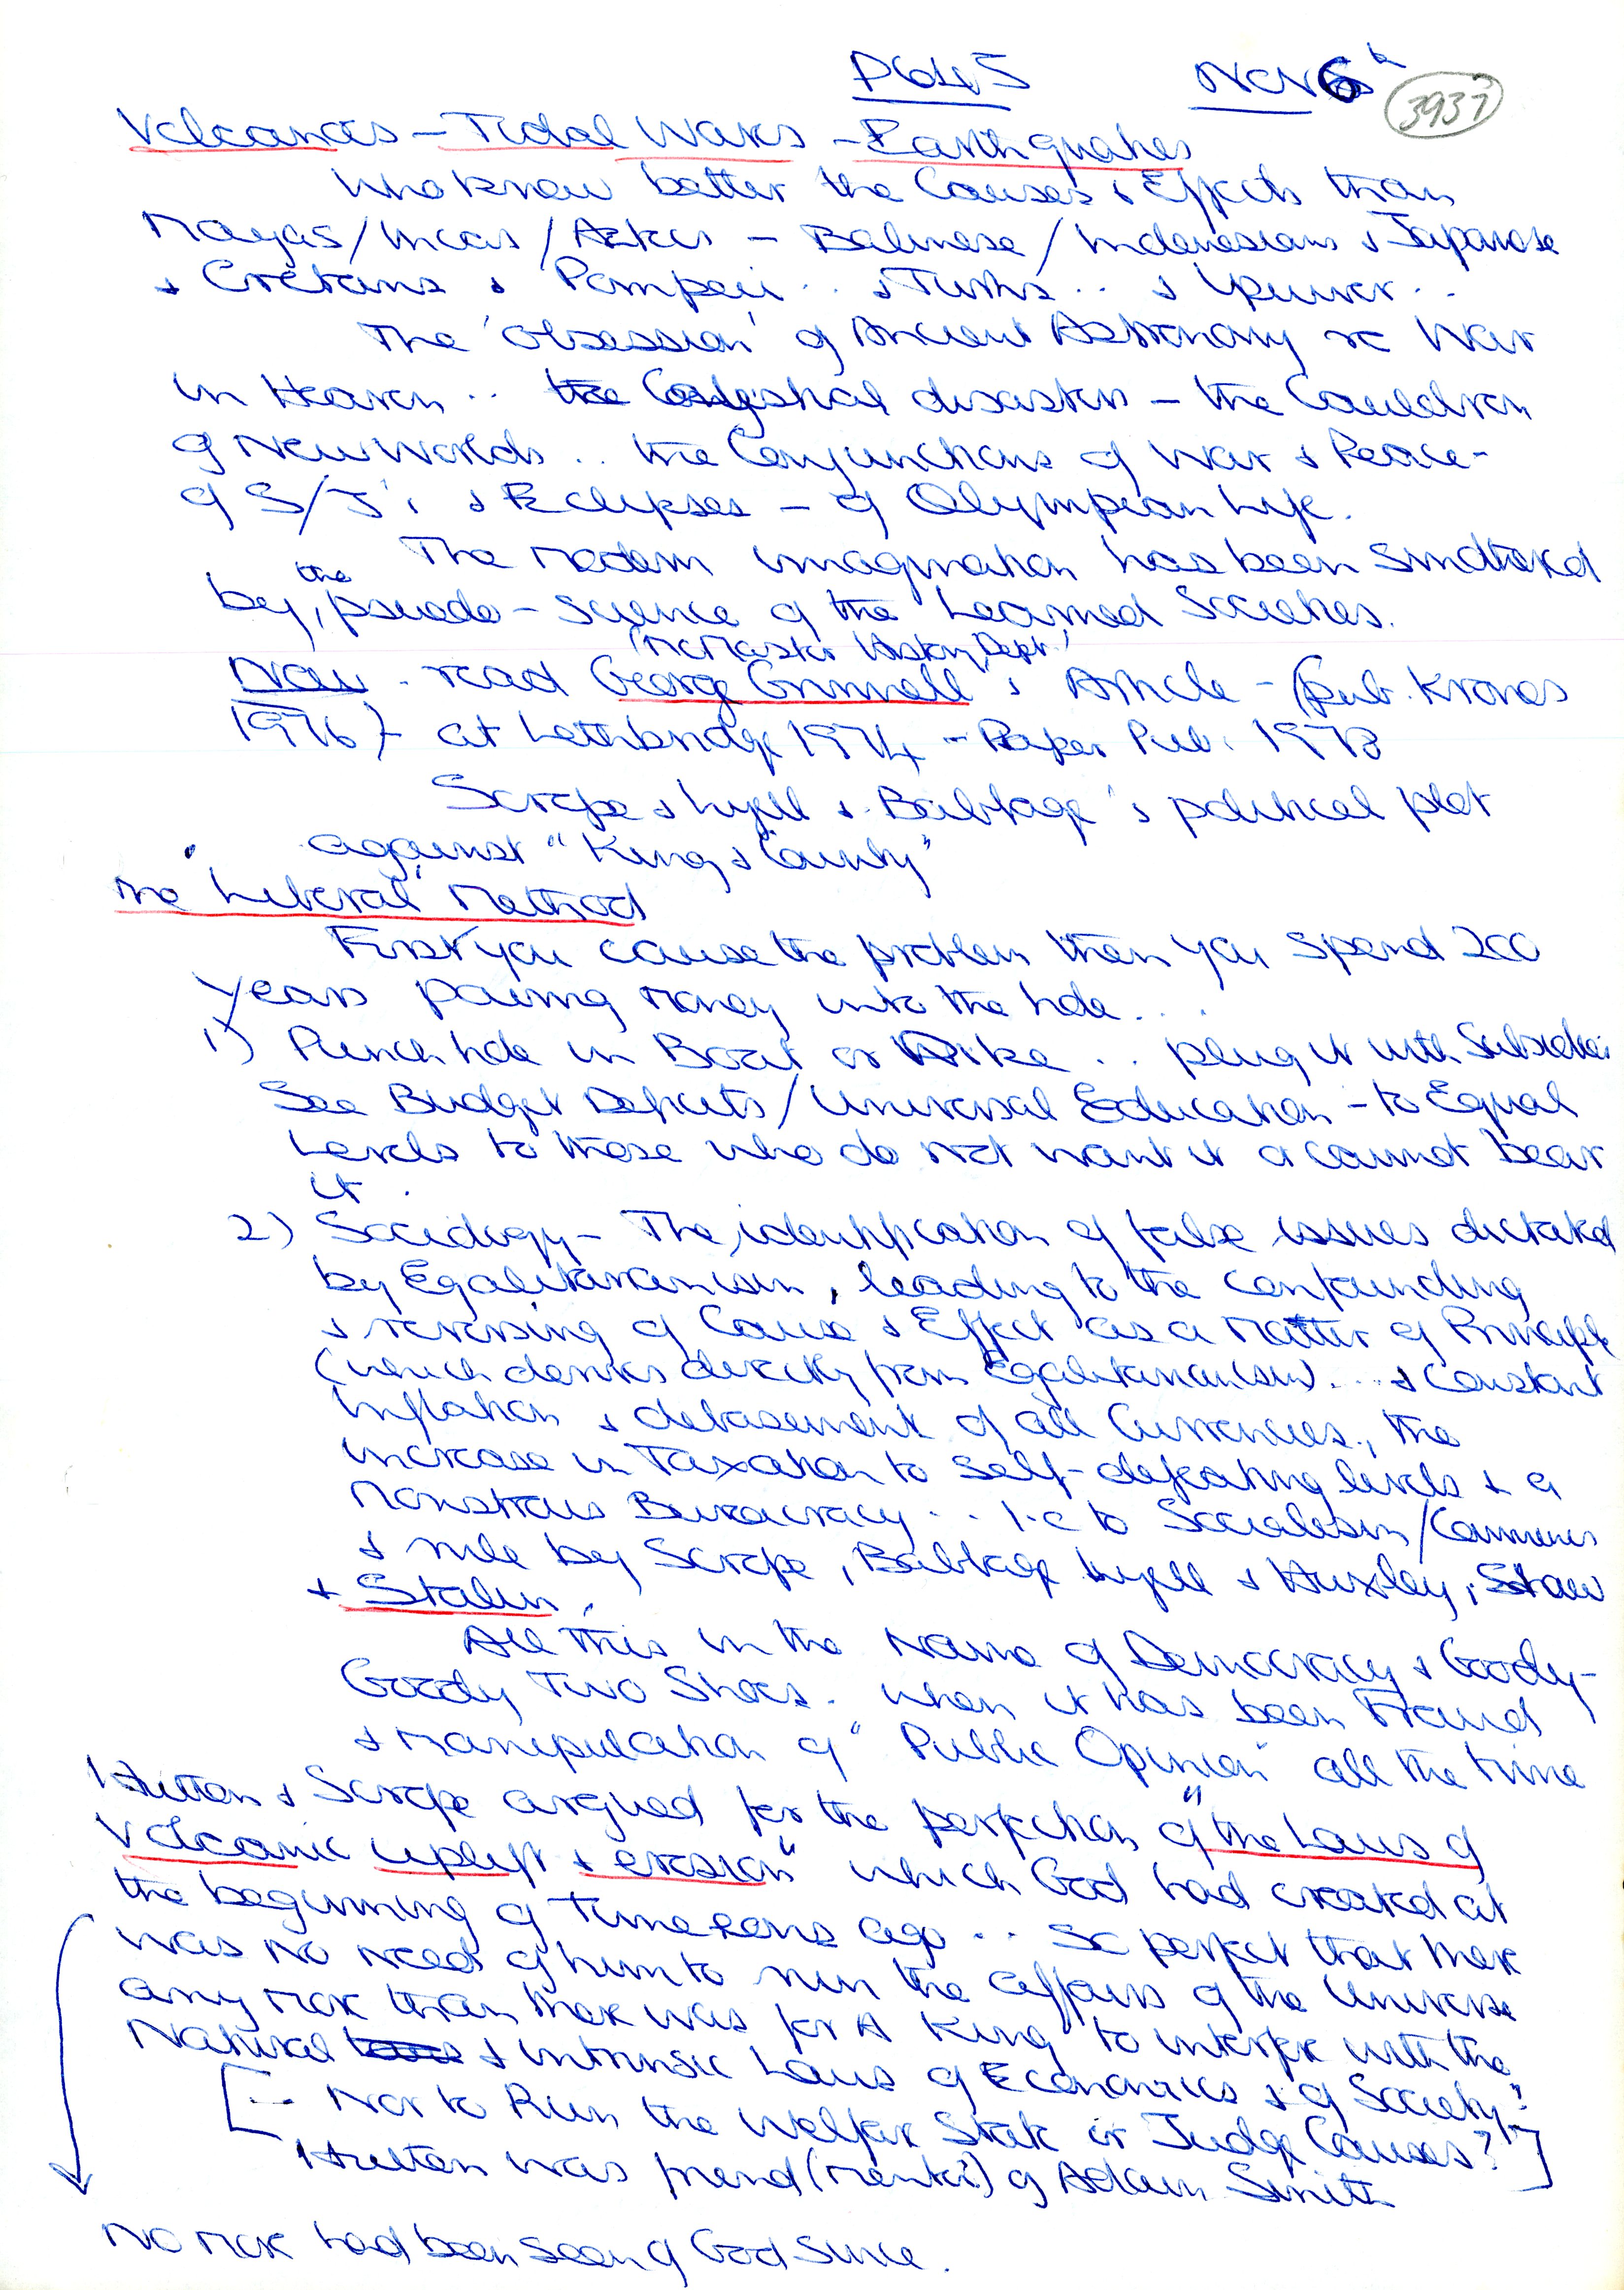 P6415 Nov 6th
3937
Volcanoes – Tidal Waves – Earthquakes
Who knew better the Causes & Effects than
Mayas/Incas/Aztecs – Balinese/Indonesians & Japanese
& Cretans & Pompeii .. & Turks .. &
The 'obsession' of Ancient Astronomy re War
in Heaven .. the Celestial disasters – the Cauldron
of New Worlds .. the Conjunctions of War & Peace –
of S/J's & Eclipses – of Olympian Life.
The Modern imagination has been
by, the pseudo-science of the Learned Societies.
(McMaster History Dept)
Now – read George Grinnell's Article – (pub. Kronos
1976) – at Lethbridge 1974 – Paper Pub. 1978
Scrope & Lyell & Babbage's political plot
against "King & County"
The 'Liberal' Method
First you cause the problem then you spend 200
years pouring money into the hole....
1) Punch hole in Boat or Dike .. plug it with Subsidies
See Budget Deficits/Universal Education – to Equal
Levels to those who do not want it or cannot bear
it.
2) Sociology – The identification of false issues dictated
by Egalitarianism, leading to the confounding
& reversing of Cause & Effect as a matter of Principle
(which derives directly from Egalitarianism) .... & constant
Inflation & debasement of all Currencies., the
increase in Taxation to self-defeating levels & a
Monstrous Buracracy .. i.e to Socialism/
& rule by Scrope, Babbage Lyell & Huxley, Shaw
& Stalin.
All this in the Name of Democracy & Goody-
Goody Two Shoes. when it has been Fraud
& Manipulation of "Public Opinion" all the time
Hutton & Scrope argued for the perfection of "the Laws of
Volcanic uplift & erosion" which God had created at
the beginning of Time eons ago .. So perfect that there
was no need of him to run the affairs of the Universe
any more than there was for A King "to interfere with the
Natural & intrinsic Laws of Economics & of Society"
[.. Nor to Run the Welfare State or Judge Causes?"]
Hutton was friend (mentor?) of Adam Smith
No more had been seen of God since.